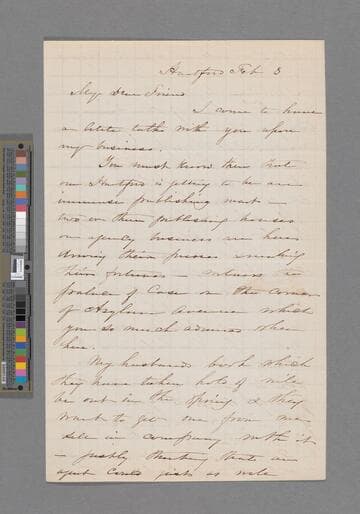 Hartford Feb 3
My Dear Friend
I come to have
a little talk with you upon
my business.
You must know then that
our Hartford is getting to be an
immense publishing mart —
two or three publishing houses
on agency business are here
driving their presses making
their fortunes — witness the
palace of Case on the corner
of Asylum Avenue which
you so much admired when
here.
My husbands book which
they have taken hold of will
be out in the spring & they
want to get one from me
sell in company with it
— justly thinking that an
agent could just as well